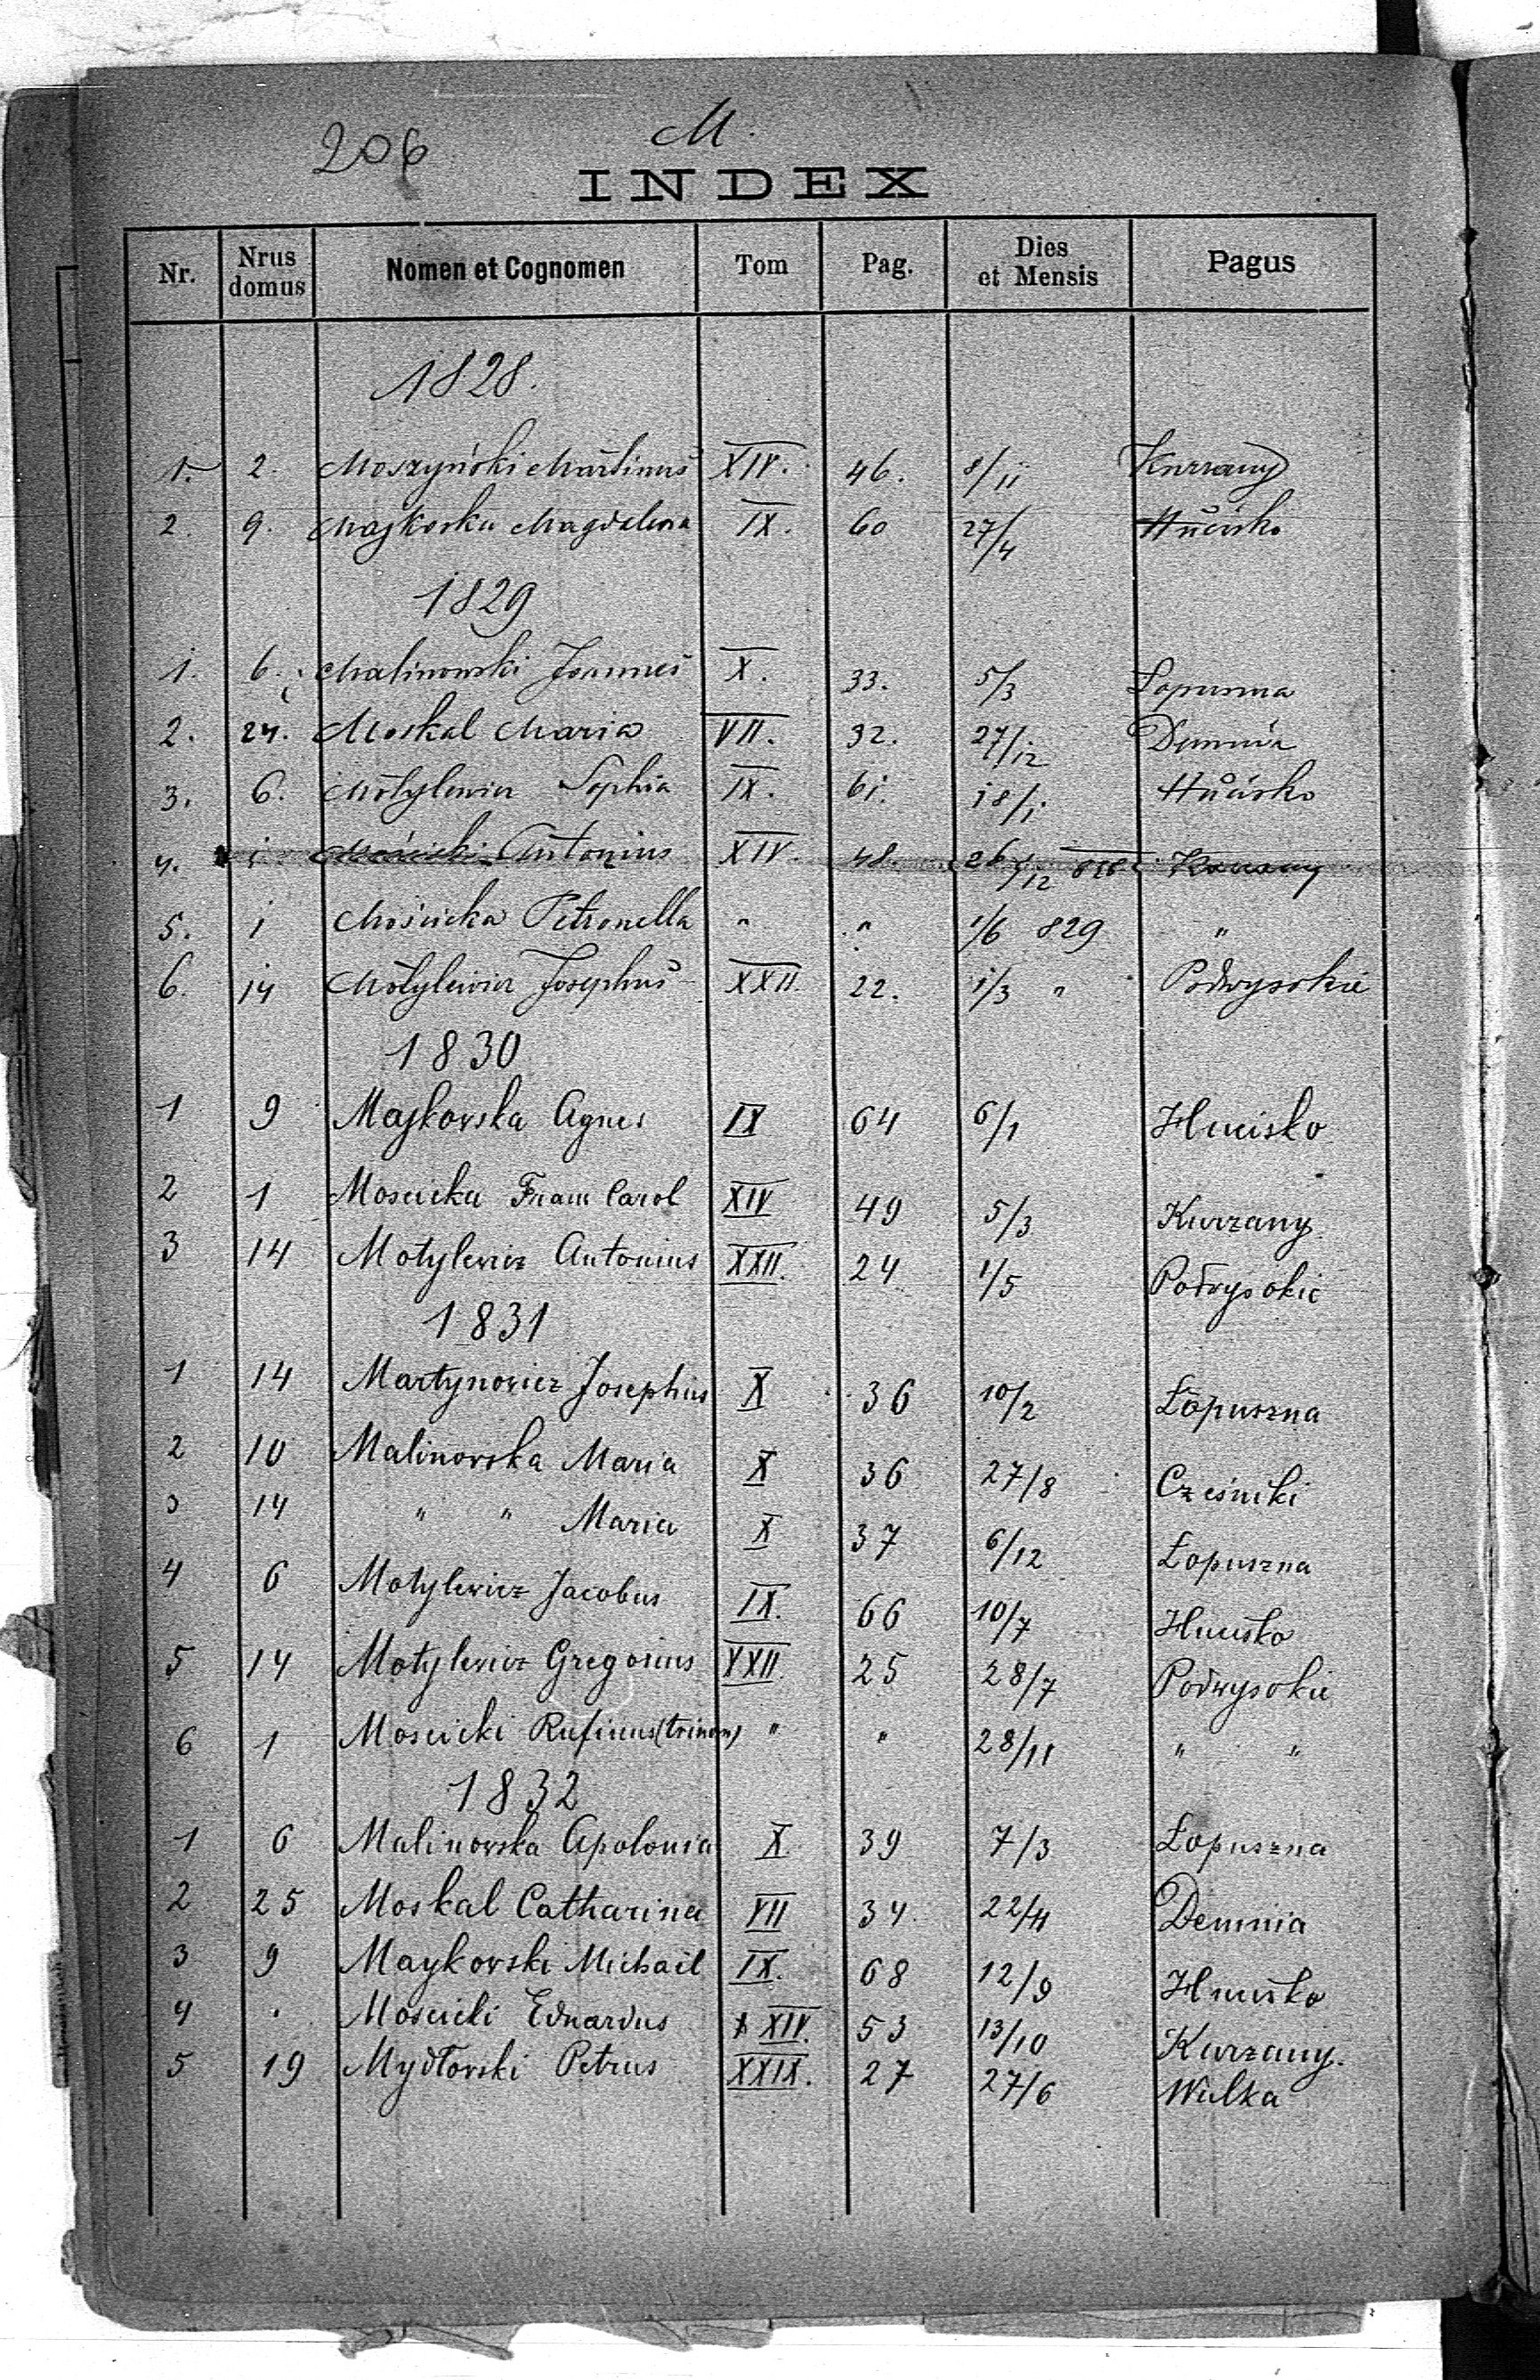 206
M.
INDEX
Nr. Nrus domus Nomen et Cognomen Tom Pag. Dies et Mensis Pagus
1828.
1. 2. Moszyński Martinus XIV. 46. 8/11 Kurzany
2. 9. Majkoska Magdalena IX. 60 27/4 Hucisko
1829
1. 6. Malinowski Joannes X. 33. 5/3 Łopuszna
2. 24. Moskal Maria VII. 32. 27/12 Demnia
3. 6. Motylewicz Sophia IX. 61. 18/1 Hucisko
4. 1 Mościcki Antonius XIV. 48. 26/12 828 Kurzany
5. 1 Mościcka Petronella " " 1/6 829 "
6. 14 Motylewicz Josephus XXII. 22. 1/3 " Podwysokie
1830
1 9 Majkovska Agnes IX 64 6/1 Hucisko
2 1 Moscicka Carol XIV 49 5/3 Kurzany
3 14 Motylevicz Antonius XXII. 24 1/5 Podvysokie
1831
1 14 Martynovicz Josephus X 36 10/2 Łopuszna
2 10 Malinovska Maria X 36 27/8 Cześniki
3 14 " " Maria X 37 6/12 Łopuszna
4 6 Motylevicz Jacobus IX. 66 10/7 Hucisko
5 14 Motylevicz Gregorius XXII. 25 28/7 Podwysokie
6 1 Moscicki Rufinus (trinom) " " 28/11 " "
1832
1 6 Malinovska Apolonia X 39 7/3 Łopuszna
2 25 Moskal Catharina VII 34 22/4 Demnia
3 9 Maykovski Michael IX. 68 12/9 Hucisko
4 . Moscicki Eduardus XIV. 53 13/10 Kurzany.
5 19 Mydłovski Petrus XXIX. 27 27/6 Wulka